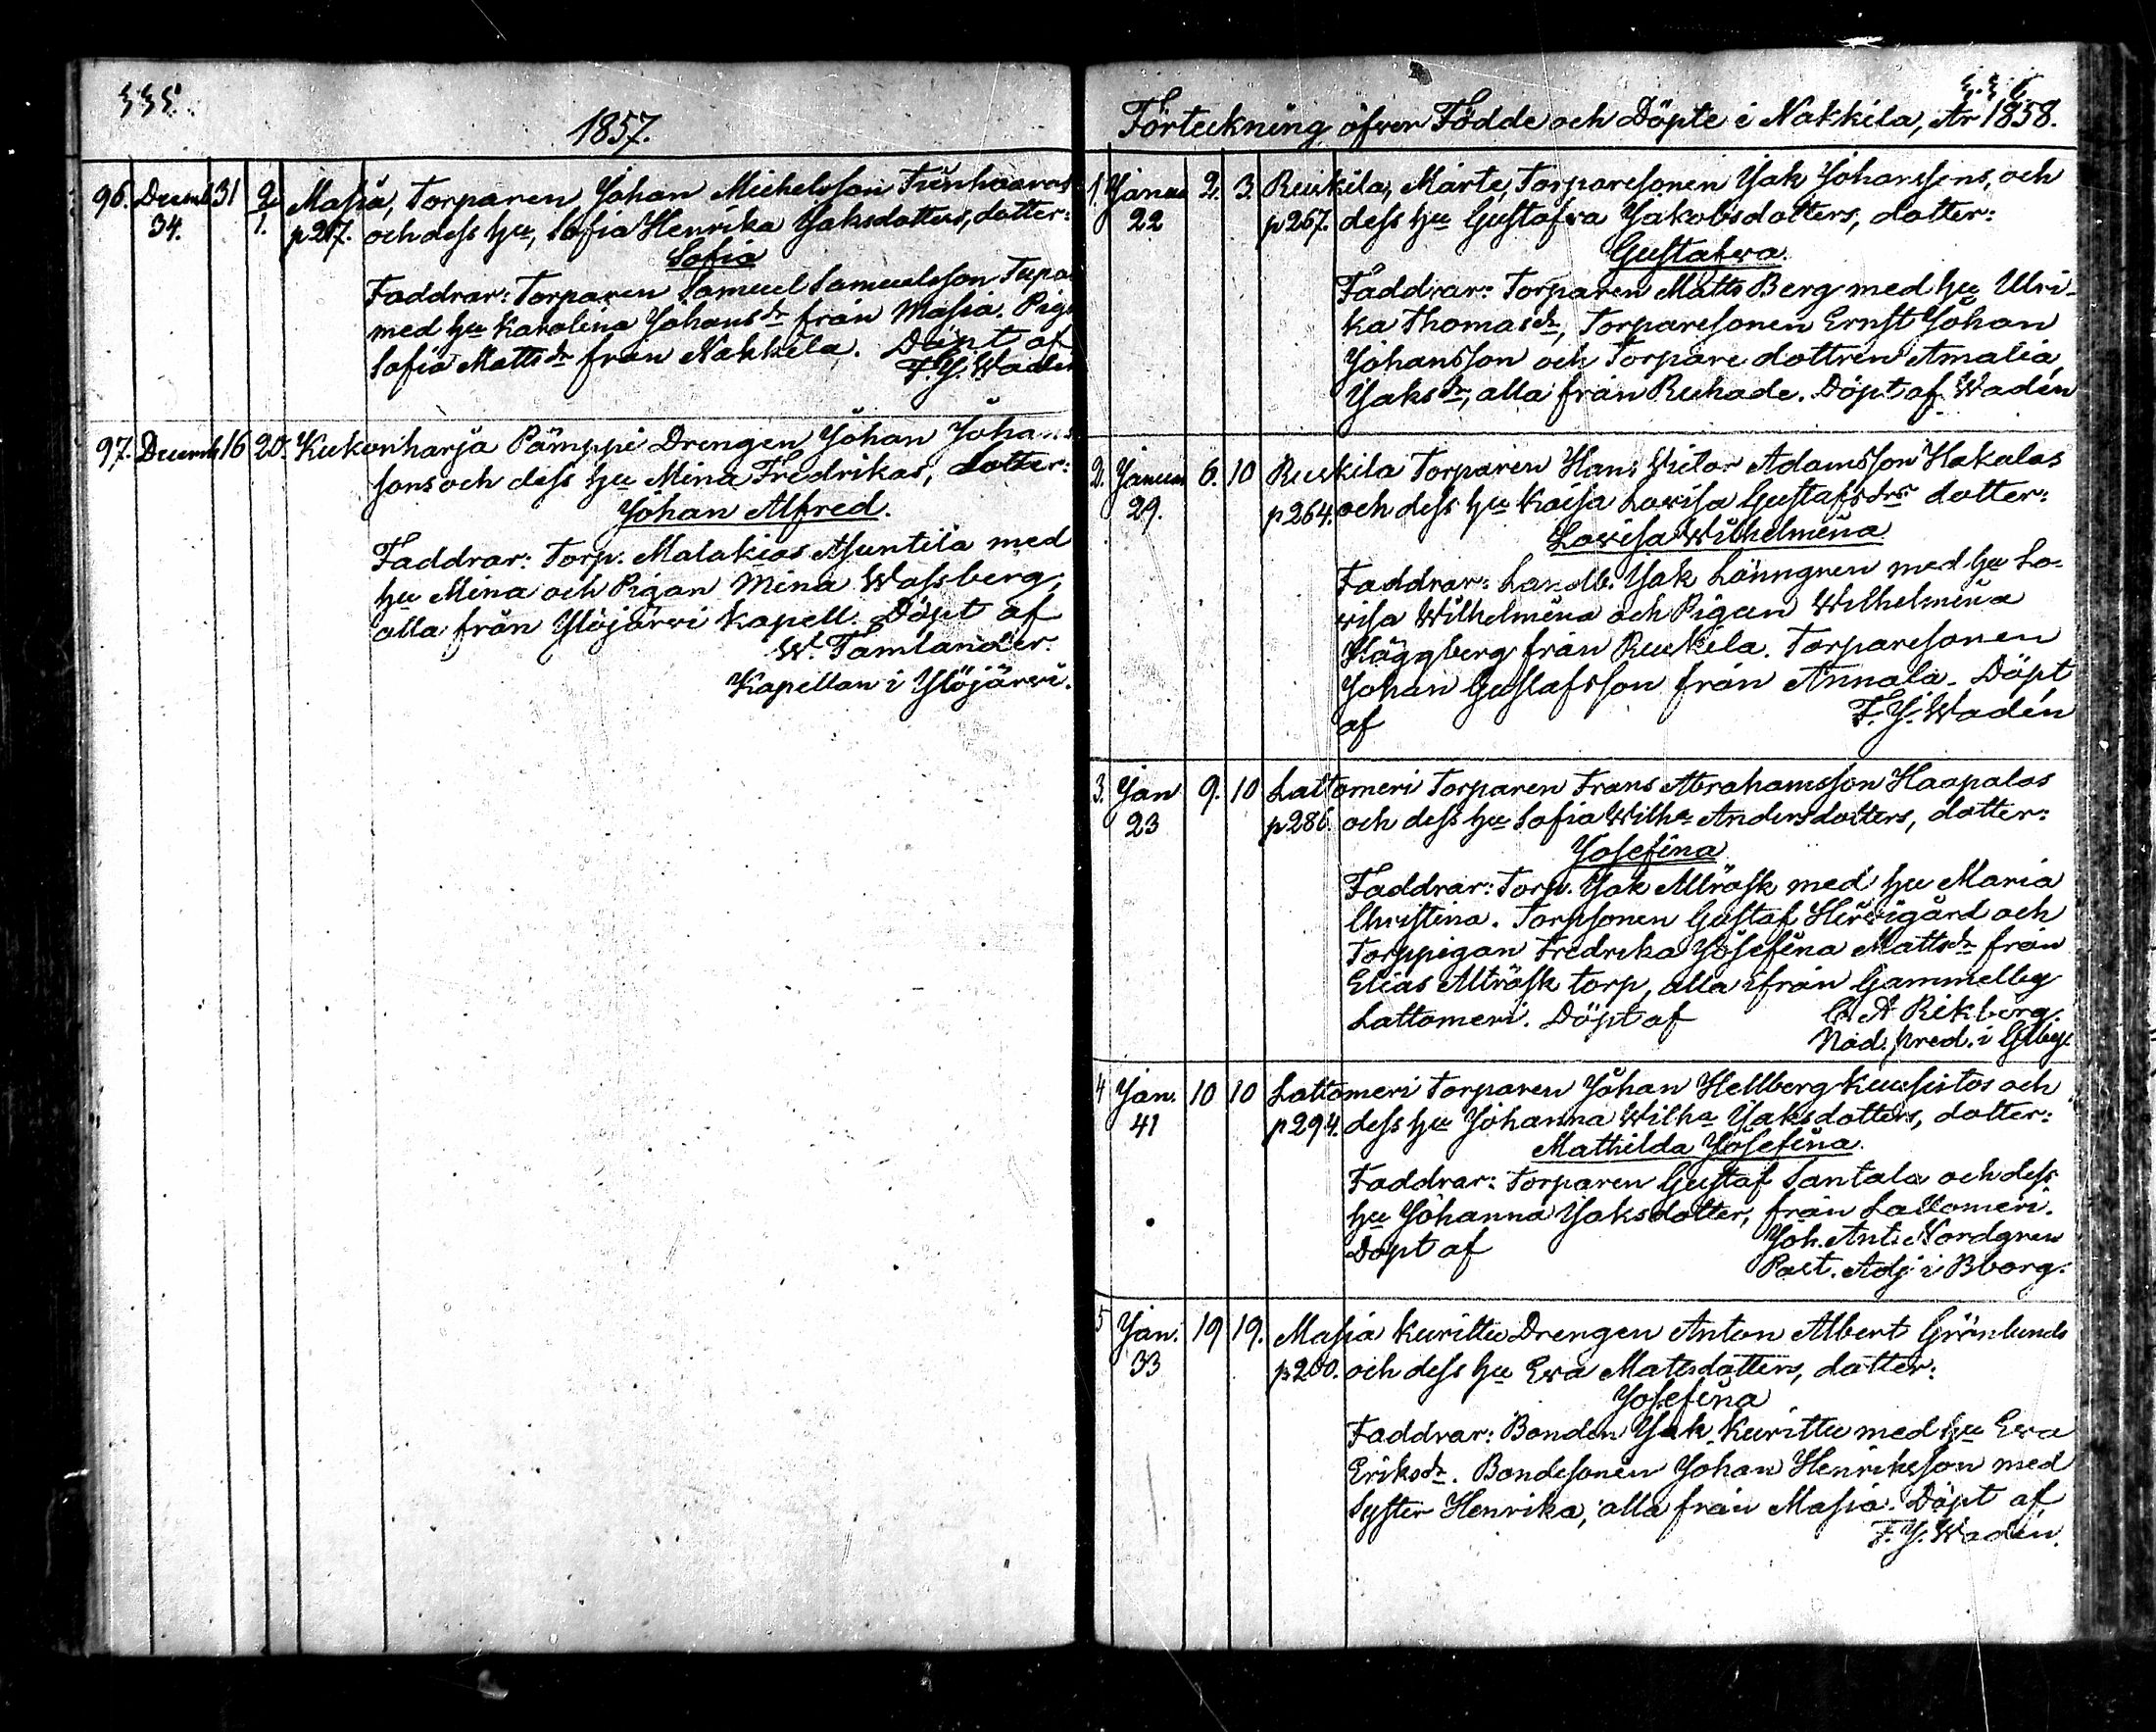 335.
1857.
96. Decemb. 31 2/1. Masia, Torparen Johan Michelsson Tienhaaras
34. p 217. och dess hu, Sofia Henrika Jaksdotters, dotter:
Sofia
Faddrar: Torparen Samuel Samuelsson Tupa
med hu Karolina Johansdr från Masia. Pig
Sofia Mattsdr från Nakkila. Döpt af
F. J. Wadén
97. Decemb. 16 20. Kukonharja Pämppi Drengen Johan Johans
sons och dess hu Mina Fredrikas, dotter:
Johan Alfred.
Faddrar: Torp. Malakias Asuntila med
hu Mina och Pigan Mina Wassberg,
alla från Ylöjärvi kapell. Döpt af
W. Tamlander.
Kapellan i Ylöjärwi.
Förteckning öfver Födde och Döpte i Nakkila, År 1858.
1. Janua 2. 3. Ruskila, Märte, Torparesonen Jak Johanssons, och
22 p 267. dess hu Gustafva Jakobsdotters, dotter:
Gustafva.
Faddrar: Torparen Matts Berg med hu Ulri-
ka Thomasdr, Torparesonen Ernst Johan
Johansson och Torpare dottren Amalia
Jaksdr, alla från Ruhade. Döpt af Wadén
2. Januar 6. 10 Ruskila Torparen Hans Victor Adamsson Hakalas
29. p 264. och dess hu Kaisa Lovisa Gustafsdrs dotter:
Lovisa Wilhelmina
Faddrar: Landb. Jak Lönngren med hu Lo-
visa Wilhelmina och Pigan Wilhelmina
Häggberg från Ruskila. Torparesonen
Johan Gustafsson från Annala. Döpt
af F. J. Wadén
3. Jan 9. 10 Lattomeri Torparen Frans Abrahamsson Haapalas
23 p 286. och dess hu Sofia Wilha Andersdotters, dotter:
Josefina
Faddrar: Torp. Jak Allräsk med hu Maria
Christina. Torpsonen Gustaf Hervigård och
Torppigan Fredrika Josefina Mattsdr från
Elias Allräsk torp, alla ifrån Gammelby
Lattomeri. Döpt af C. A Rikberg.
Nåd. pred. i Glby.
4 Jan. 10 10 Lattomeri Torparen Johan Hellberg Kuusistos och
41 p 294. dess hu Johanna Wilha Jaksdotters, dotter:
Mathilda Josefina.
Faddrar: Torparen Gustaf Santala och dess
hu Johanna Jaksdotter, från Lattomeri.
Döpt af Joh. Ant. Nordgren
Past. Adj i Bborg.
5 Jan. 19 19. Masia Kurittu Drengen Anton Albert Grönlunds
33 p 200. och dess hu Eva Mattsdotters, dotter:
Josefina
Faddrar: Bonden Jak. Kurittu med hu Eva
Eriksdr. Bondesonen Johan Henriksson med
Syster Henrika, alla från Masia. Döpt af
F. J. Wadén.